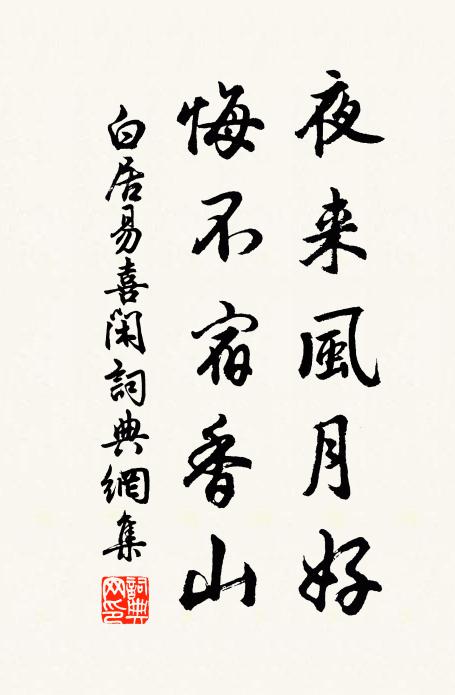 夜来風月好
悔不宿香山
白居易喜閑詞典網集
詞典網印